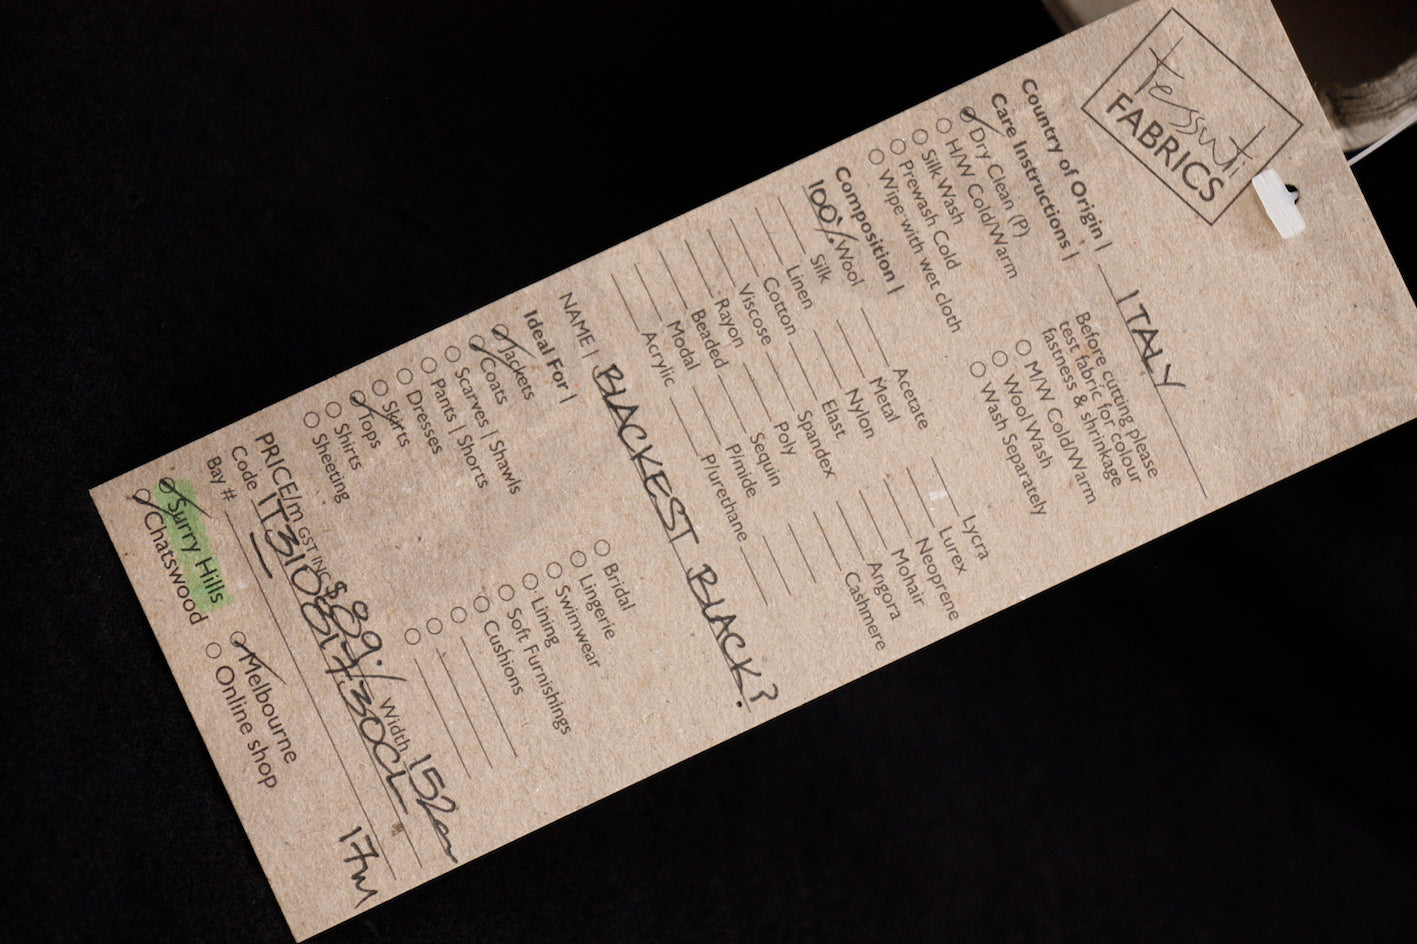 tessuti
FABRICS
Country of Origin | ITALY
Care Instructions |
Dry Clean (P)
H/W Cold/Warm
Silk Wash
Prewash Cold
Wipe with wet cloth
Before cutting please
test fabric for colour
fastness & shrinkage
M/W Cold/Warm
Wool Wash
Wash Separately
Composition |
100% Wool
Silk
Linen
Cotton
Viscose
Rayon
Beaded
Modal
Acrylic
Acetate
Metal
Nylon
Elast
Spandex
Poly
Sequin
P/mide
P/urethane
Lycra
Lurex
Neoprene
Mohair
Angora
Cashmere
NAME | BLACKEST BLACK?
Ideal For |
Jackets
Coats
Scarves | Shawls
Pants | Shorts
Dresses
Skirts
Tops
Shirts
Sheeting
Bridal
Lingerie
Swimwear
Lining
Soft Furnishings
Cushions
PRICE/m GST INC $89./ Width 152cm
Code
Bay # 17m
Surry Hills
Chatswood
Melbourne
Online shop